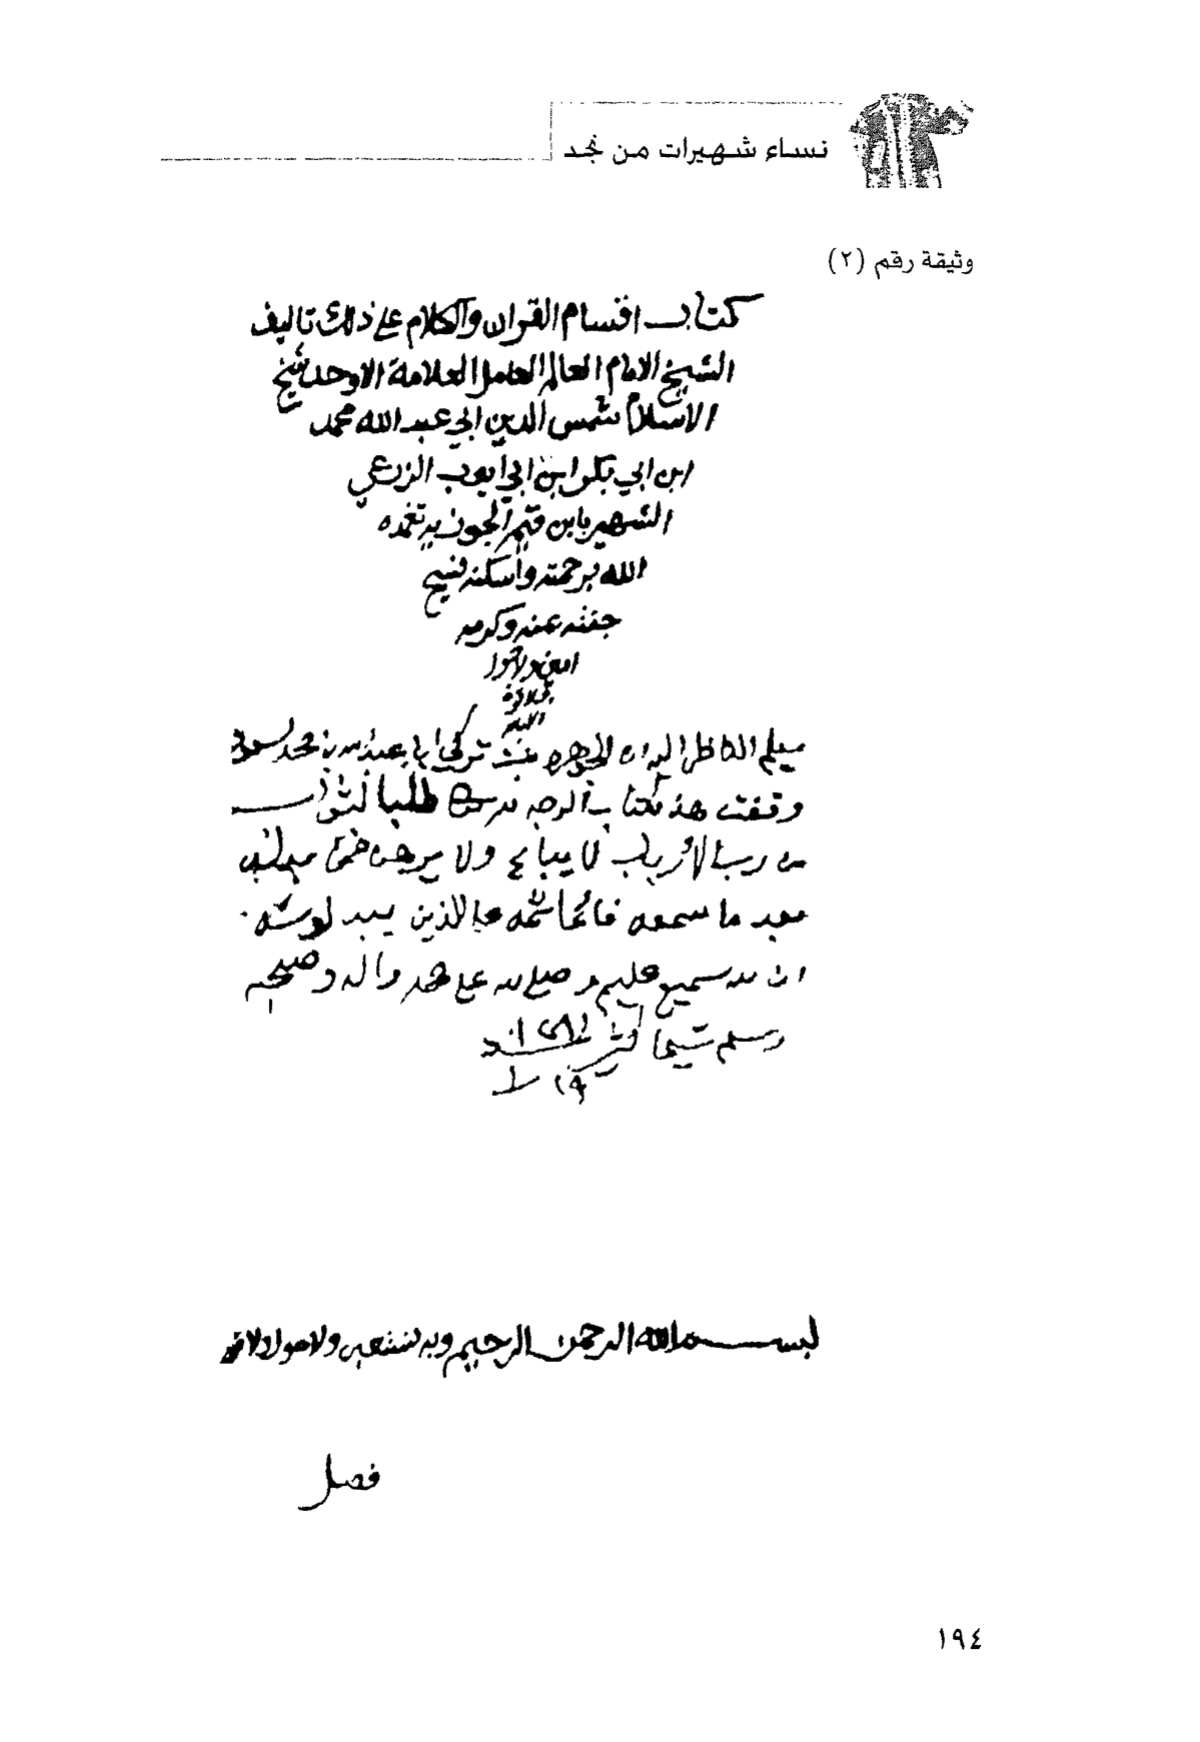 نساء شهيرات من نجد
وثيقة رقم (٢)
كتاب اقسام القران والكلام على ذلك تاليف
الشيخ الامام العالم العامل العلامة الاوحد شيخ
الاسلام شمس الدين ابي عبد الله محمد
ابن ابي بكر ابن ابي ايوب الزرعي
الشهير بابن قيم الجوزيه تغمده
الله برحمته واسكنه فسيح
جنته بمنه وكرمه
امين ولا حول
يعلم الناظر اليه ان الجوهره بنت تركي ابن عبد الله بن محمد السعود
وقفت هذ الكتاب لوجه الله طلبا لثواب
من رب الأرباب لا يباع ولا يرهن فمن بدله
بعد ما سمعه فانما اثمه على الذين يبدلونه
ان الله سميع عليم وصلى الله على محمد واله وصحبه
وسلم تسليما كثيرا
بسم الله الرحمن الرحيم وبه نستعين ولا حول ولا قوه
فصل
١٩٤